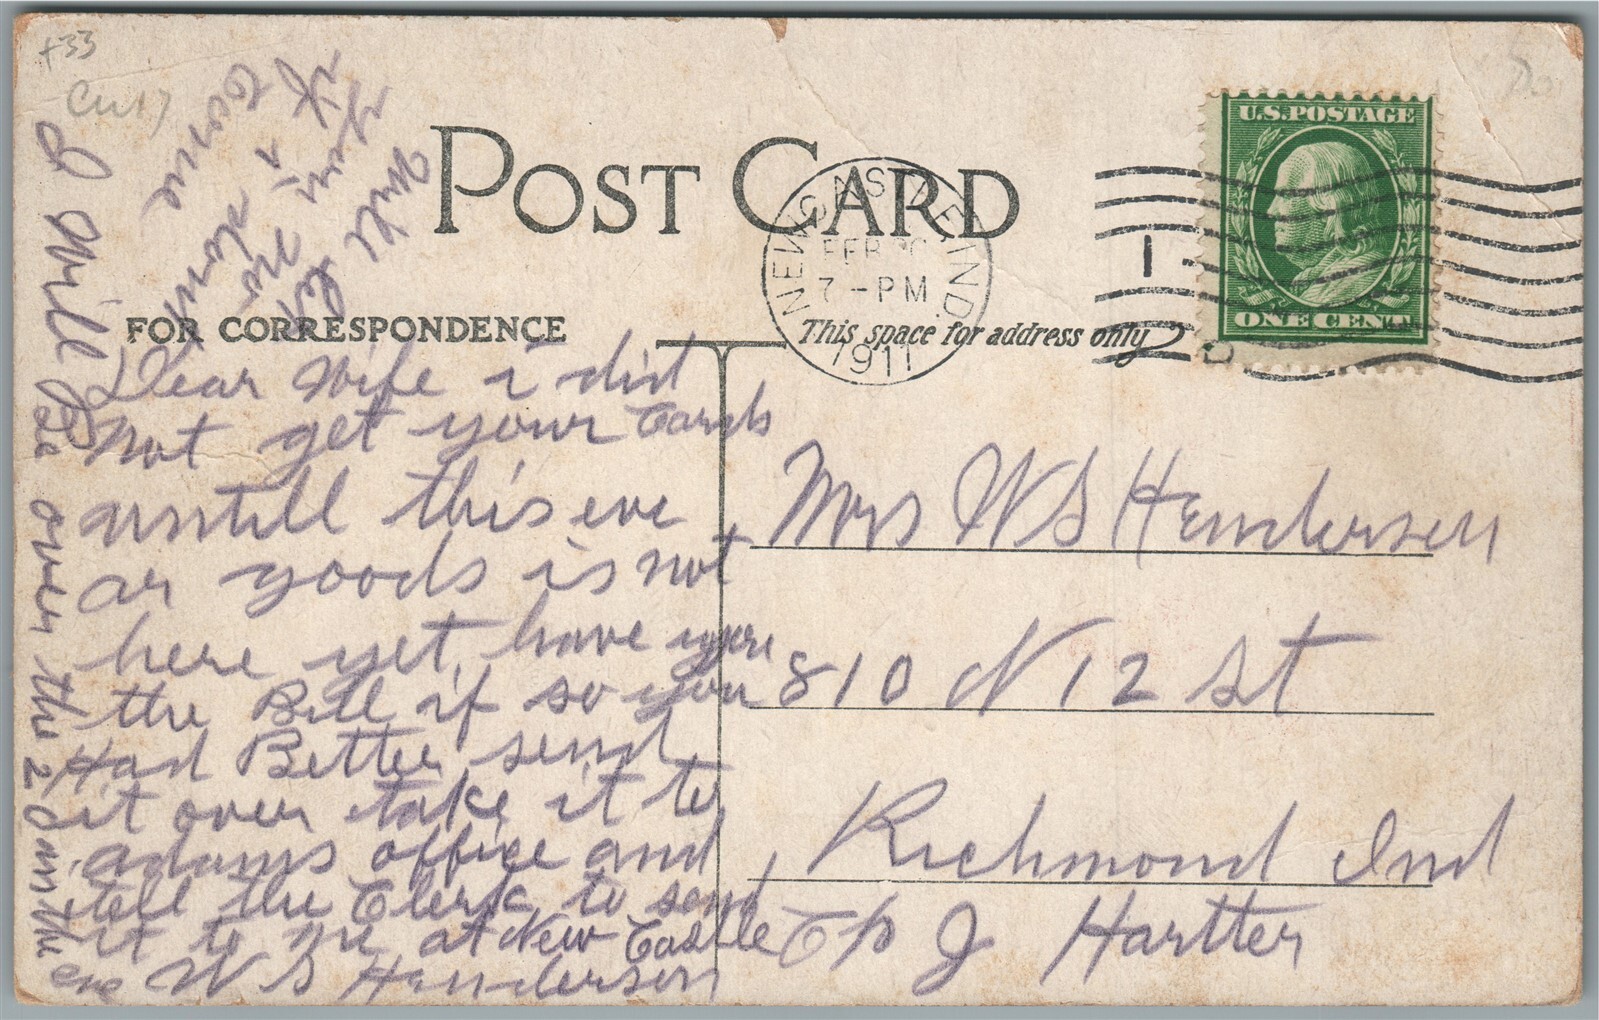 +33
POST CARD
FOR CORRESPONDENCE
This space for address only
NEW CASTLE IND.
FEB 20
7-PM
1911
1
U.S. POSTAGE
ONE CENT
Dear Wife i did
Not get your Cards
untill this eve
ar goods is not
here yet have you
the Bill if so you
Had Better send
it over take it to
adams office and
tell the Clerk to send
it to me at New Castle
W S Henderson
I Will Be over the 2
an the
eve
Will let
you no
if i dont
come
Mrs W S Henderson
810 N 12 St
Richmond Ind
C/o J Hartter